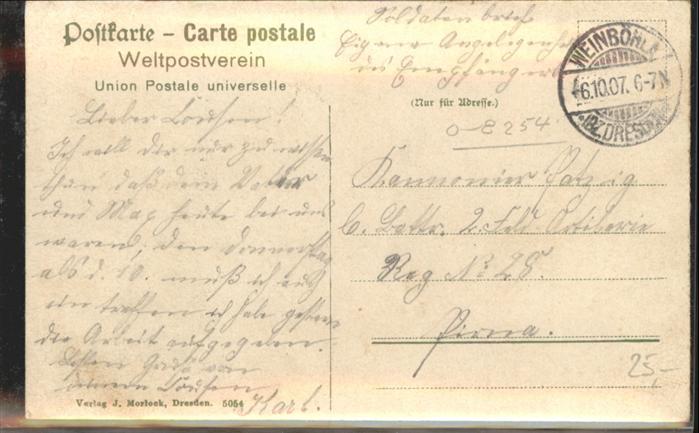 Postkarte – Carte postale
Weltpostverein
Union Postale universelle
Soldatenbrief
Eigene Angelegenheit
des Empfängers
WEINBÖHLA
6.10.07. 6-7N
BZ. DRESDEN
(Nur für Adresse.)
0-8254
Lieber Cousen!
Ich will dir nur zu wissen
thun daß dein Vater
und Max heute bei uns
waren; den Donnerstag
als d. 10. muß ich
ich habe gestern
die Arbeit aufgegeben.
Besten Gruß von
deinem Cousen
Karl.
Kannonier
6. Battr. 2. Feld Artilerie
Reg No 28.
Pirna.
25,-
Verlag J. Morlock, Dresden. 5054